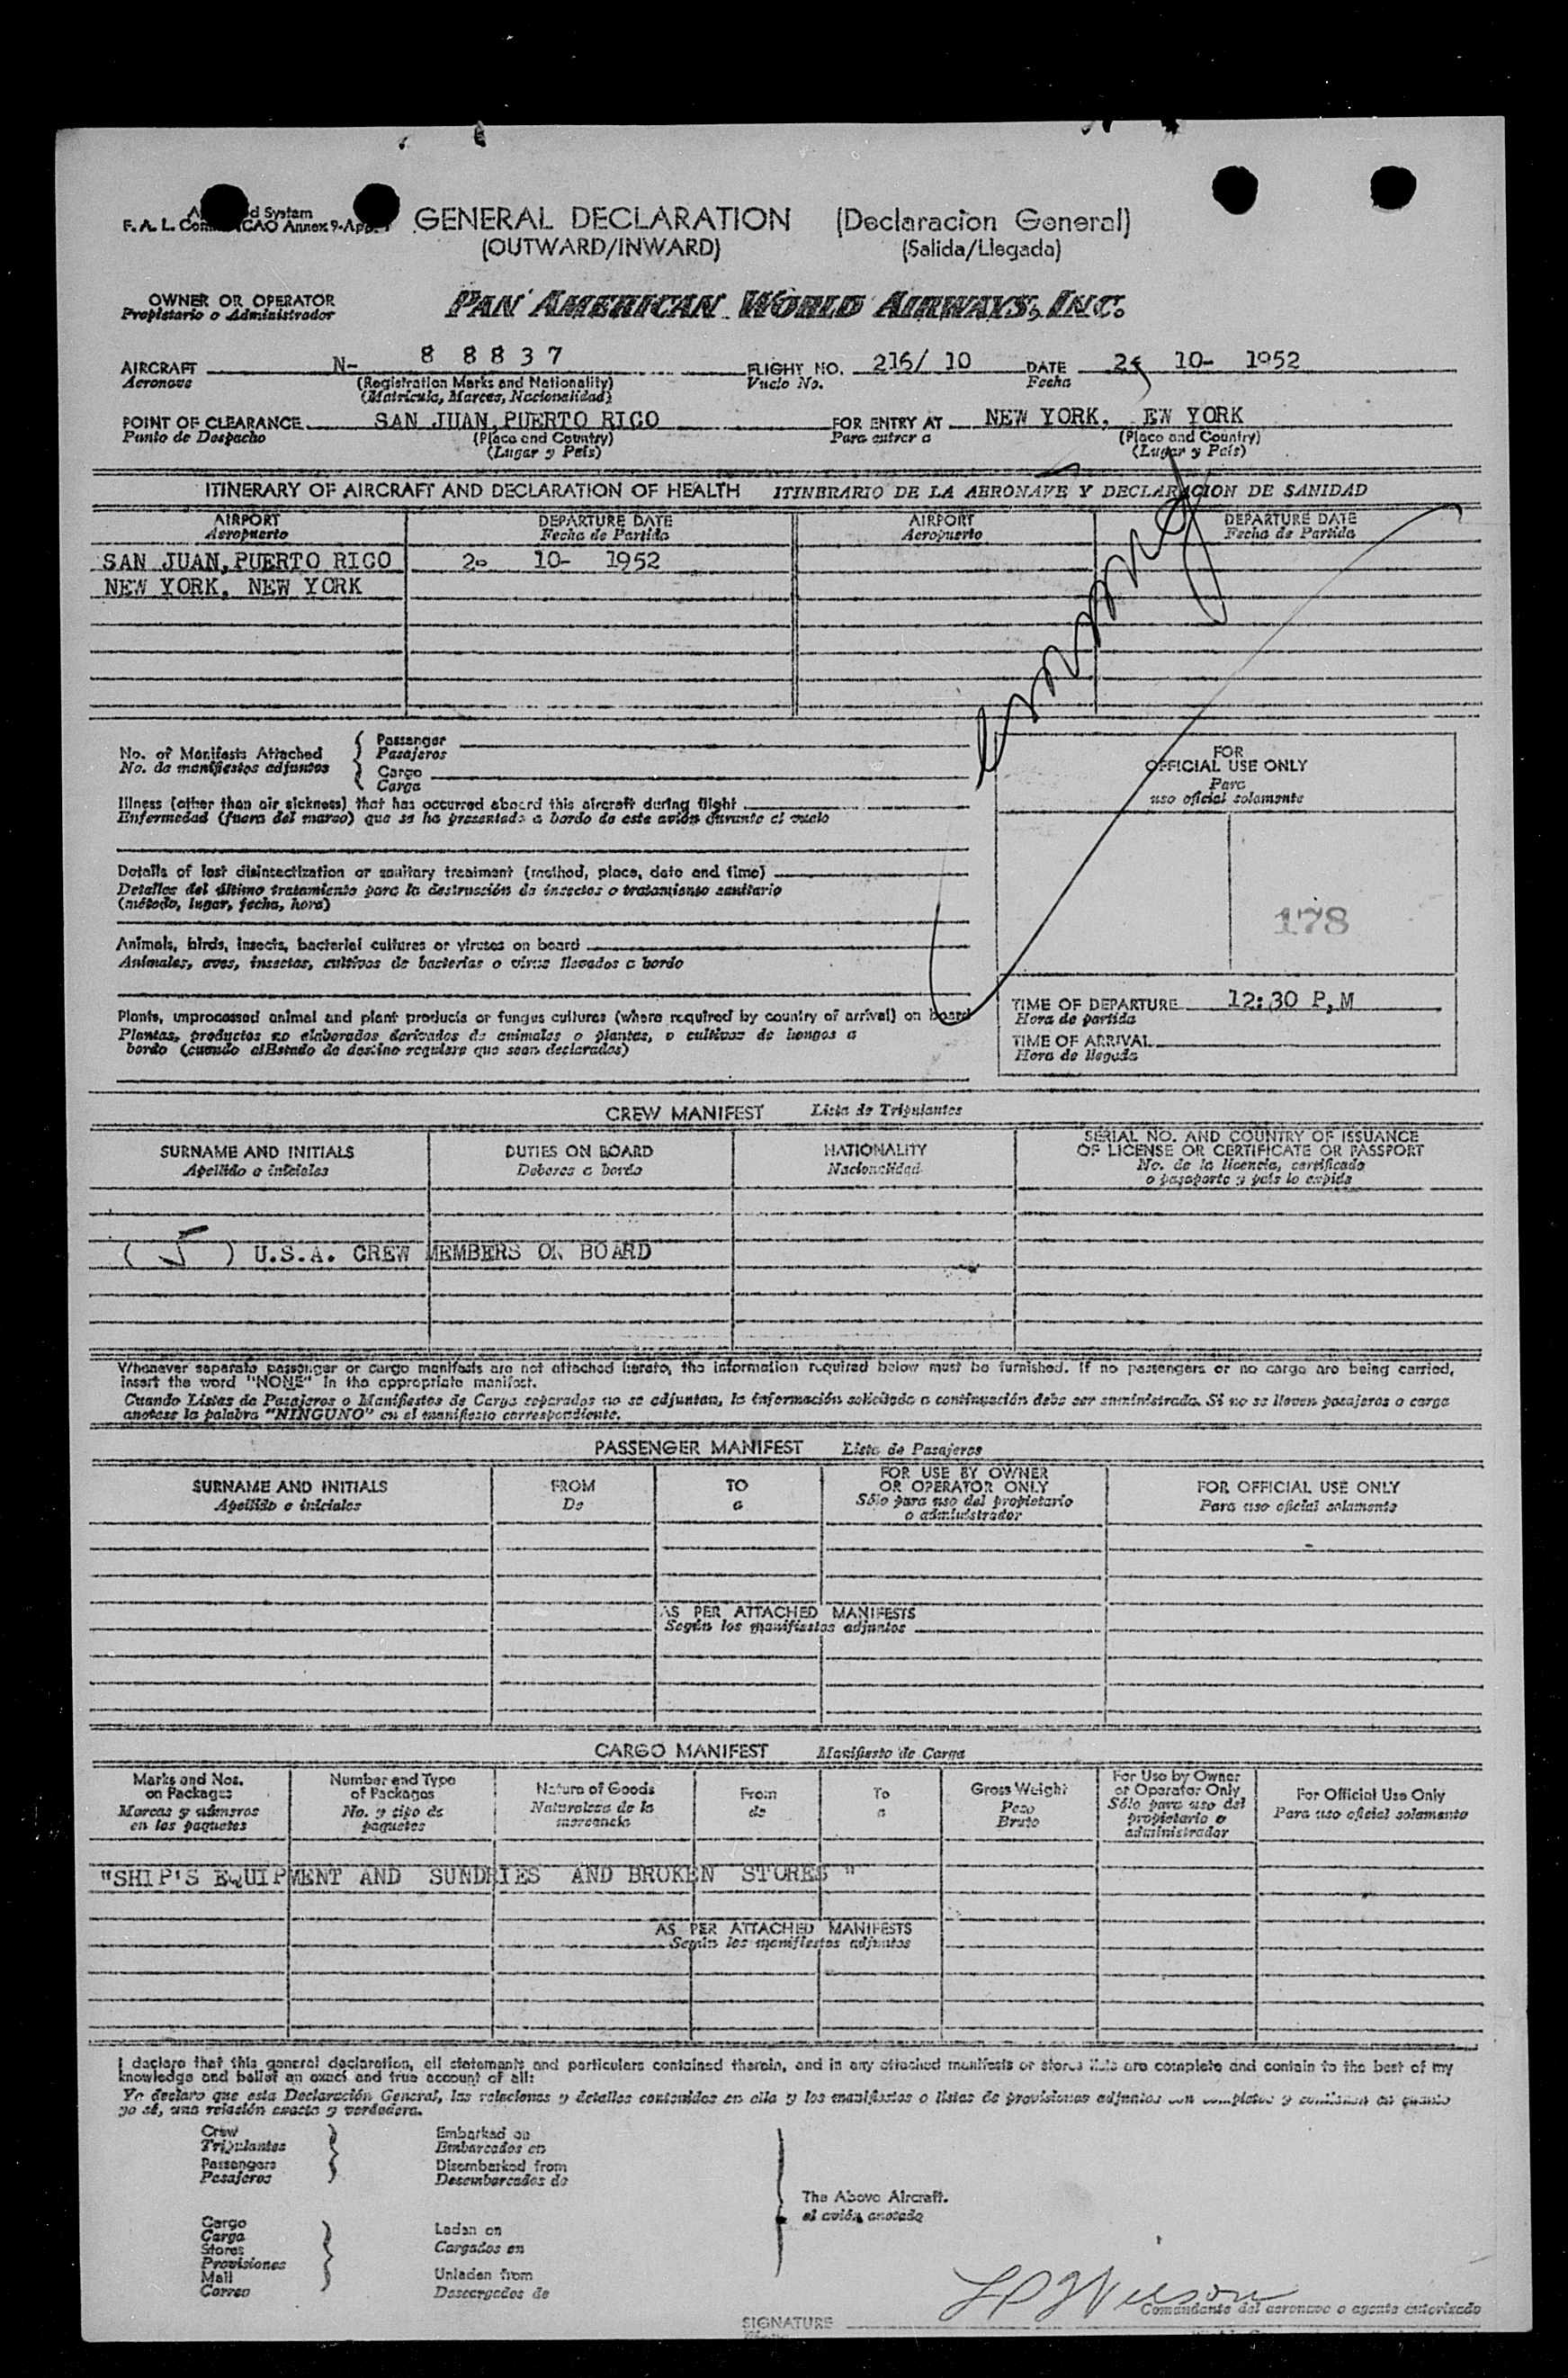 d System
F. A. L. Com ICAO Annex 9-App.
GENERAL DECLARATION (Declaracion General)
(OUTWARD/INWARD) (Salida/Llegada)
OWNER OR OPERATOR
Propietario o Administrador
PAN AMERICAN WORLD AIRWAYS, INC.
AIRCRAFT N- 8 8 8 3 7 FLIGHT NO. 216/ 10 DATE 10- 1952
Aeronave (Registration Marks and Nationality) Vuelo No. Fecha
(Matricula, Marcas, Nacionalidad)
POINT OF CLEARANCE SAN JUAN, PUERTO RICO FOR ENTRY AT NEW YORK, EW YORK
Punto de Despacho (Place and Country) Para entrar a (Place and Country)
(Lugar y Pais) (Lugar y Pais)
ITINERARY OF AIRCRAFT AND DECLARATION OF HEALTH ITINERARIO DE LA AERONAVE Y DECLARACION DE SANIDAD
AIRPORT DEPARTURE DATE AIRPORT DEPARTURE DATE
Aeropuerto Fecha de Partida Aeropuerto Fecha de Partida
SAN JUAN, PUERTO RICO 20 10- 1952
NEW YORK, NEW YORK
No. of Manifests Attached
No. de manifiestos adjuntos
Passenger
Pasajeros
Cargo
Carga
FOR
OFFICIAL USE ONLY
Para
uso oficial solamente
Illness (other than air sickness) that has occurred aboard this aircraft during flight
Enfermedad (fuera del mareo) que se ha presentado a bordo de este avión durante el vuelo
Details of last disinsectization or sanitary treatment (method, place, date and time)
Detalles del último tratamiento para la destrucción de insectos o tratamiento sanitario
(método, lugar, fecha, hora)
178
Animals, birds, insects, bacterial cultures or viruses on board
Animales, aves, insectos, cultivos de bacterias o virus llevados a bordo
Plants, unprocessed animal and plant products or fungus cultures (where required by country of arrival) on board
Plantas, productos no elaborados derivados de animales o plantas, o cultivos de hongos a
bordo (cuando el Estado de destino requiere que sean declarados)
TIME OF DEPARTURE 12:30 P,M
Hora de partida
TIME OF ARRIVAL
Hora de llegada
CREW MANIFEST Lista de Tripulantes
SURNAME AND INITIALS DUTIES ON BOARD NATIONALITY SERIAL NO. AND COUNTRY OF ISSUANCE
OF LICENSE OR CERTIFICATE OR PASSPORT
Apellido e iniciales Deberes a bordo Nacionalidad No. de la licencia, certificado
o pasaporte y pais lo expide
( 5 ) U.S.A. CREW MEMBERS ON BOARD
Whenever separate passenger or cargo manifests are not attached hereto, the information required below must be furnished. If no passengers or no cargo are being carried,
insert the word "NONE" in the appropriate manifest.
Cuando Listas de Pasajeros o Manifiestos de Carga separados no se adjuntan, la información solicitada a continuación debe ser suministrada. Si no se llevan pasajeros o carga
anotase la palabra "NINGUNO" en el manifiesto correspondiente.
PASSENGER MANIFEST Lista de Pasajeros
SURNAME AND INITIALS FROM TO FOR USE BY OWNER
OR OPERATOR ONLY FOR OFFICIAL USE ONLY
Apellido e iniciales De a Sólo para uso del propietario
o administrador Para uso oficial solamente
AS PER ATTACHED MANIFESTS
Según los manifiestos adjuntos
CARGO MANIFEST Manifiesto de Carga
Marks and Nos.
on Packages
Marcas y números
en los paquetes
Number and Type
of Packages
No. y tipo de
paquetes
Nature of Goods
Naturaleza de la
mercancía
From
de
To
a
Gross Weight
Peso
Bruto
For Use by Owner
or Operator Only
Sólo para uso del
propietario o
administrador
For Official Use Only
Para uso oficial solamente
"SHIP'S EQUIPMENT AND SUNDRIES AND BROKEN STORES "
AS PER ATTACHED MANIFESTS
Según los manifiestos adjuntos
I declare that this general declaration, all statements and particulars contained therein, and in any attached manifests or stores lists are complete and contain to the best of my
knowledge and belief an exact and true account of all:
Yo declaro que esta Declaración General, las relaciones y detalles contenidos en ella y los manifiestos o listas de provisiones adjuntos son completos y contienen en cuanto
yo sé, una relación exacta y verdadera.
Crew
Tripulantes
Passengers
Pasajeros
Embarked on
Embarcados en
Disembarked from
Desembarcados de
The Above Aircraft.
el avión anotado
Cargo
Carga
Stores
Provisiones
Mail
Correo
Laden on
Cargados en
Unladen from
Descargados de
Comandante del aeronave o agente autorizado
SIGNATURE